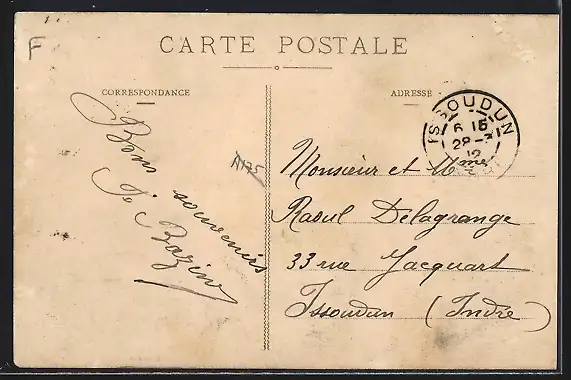 F
CARTE POSTALE
CORRESPONDANCE
ADRESSE
Bons souvenirs
J. Bazin
A175
ISSOUDUN
6 15
28 -3
12
Monsieur et Mme
Raoul Delagrange
33 rue Jacquart
Issoudun (Indre)